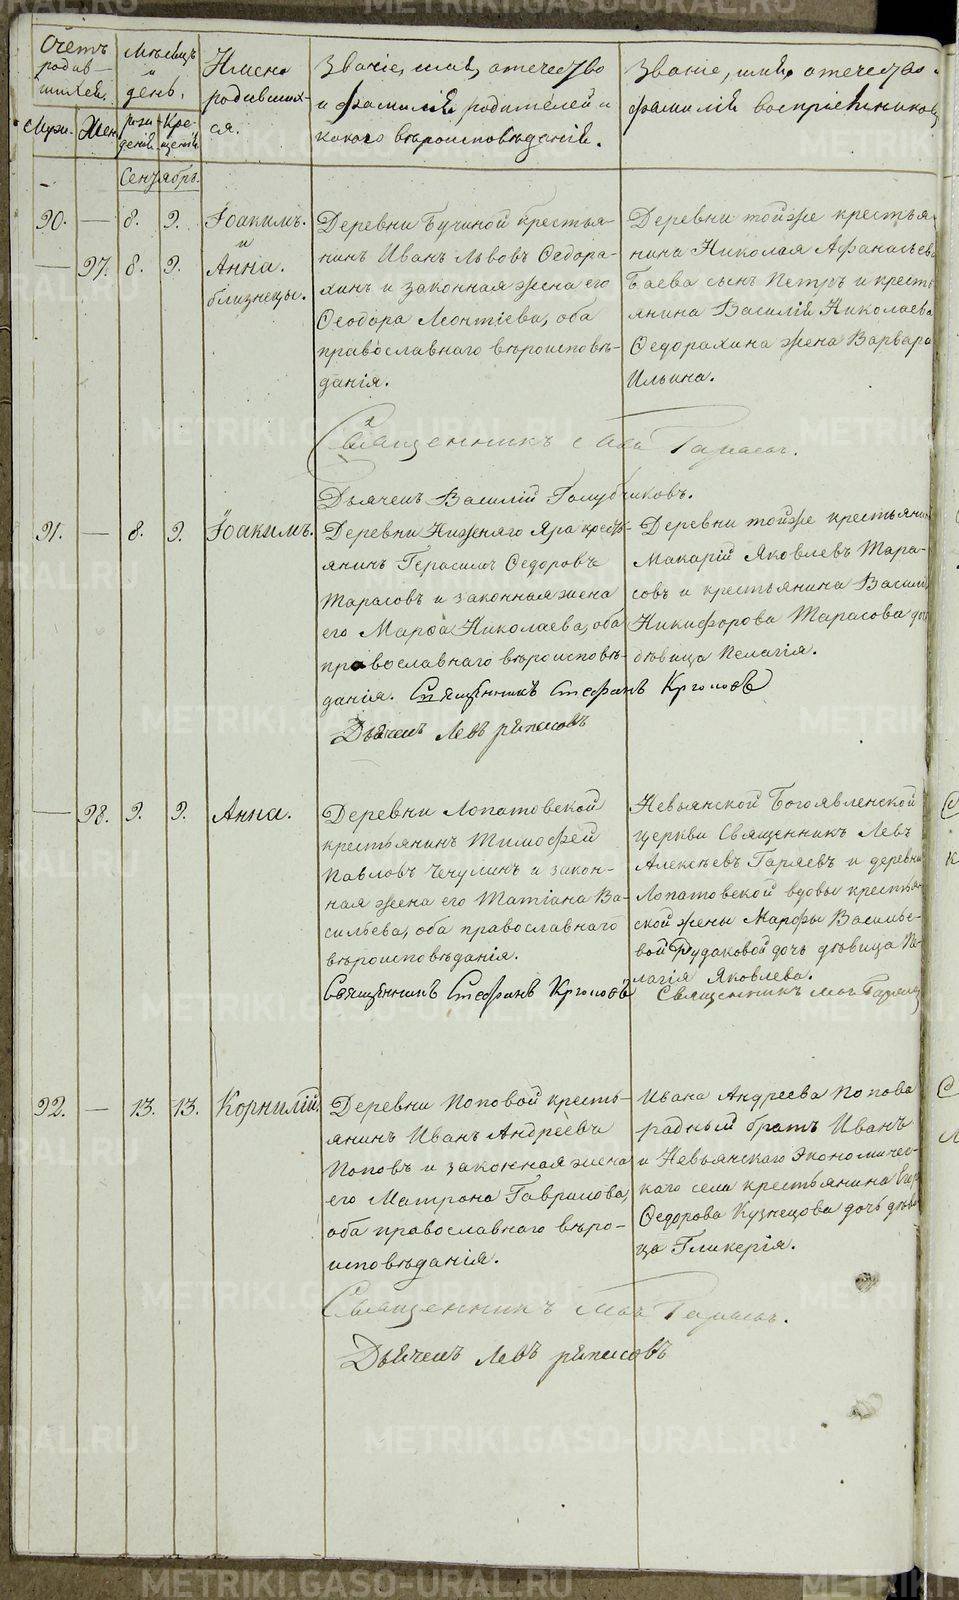 Счетъ родив-шихся.
Мѣсяцъ и день.
Имена родивших-ся.
Званіе, имя, отечество
и фамилія родителей и
какого вѣроисповѣданія.
Званіе, имя, отечество и
фамилія воспріемниковъ
Муж. Жен. рож-денія Кре-щенія
Сентябрь.
90. — 8. 9. Іоакимъ.
и
— 97. 8. 9. Анна.
близнецы.
Деревни Бучиной крестья-
нинъ Иванъ Львовъ Ѳедора-
хинъ и законная жена его
Ѳеодора Леонтіева, оба
православнаго вѣроисповѣ-
данія.
Деревни тойже крестья-
нина Николая Афанасьева
Баева сынъ Петръ и кресть-
янина Василій Николаева
Ѳедорахина жена Варвара
Ильина.
Священникъ
Дьячекъ Василій Голубчиковъ.
91. — 8. 9. Іоакимъ.
Деревни Нижняго Яра кресть-
янинъ Герасимъ Ѳедоровъ
Тарасовъ и законная жена
его Марѳа Николаева, оба
православнаго вѣроисповѣ-
данія. Священникъ Стефанъ
Деревни тойже крестьянинъ
Макарій Яковлевъ Тара-
совъ и крестьянина Василія
Никифорова Тарасова дочь
дѣвица Пелагія.
Дьячекъ Левъ
— 98. 9. 9. Анна.
Деревни Лопатовской
крестьянинъ Тимоѳей
Павловъ Чечулинъ и закон-
ная жена его Татіана Ва-
сильева, оба православнаго
вѣроисповѣданія.
Священникъ Стефанъ
Невьянской Богоявленской
церкви Священникъ Левъ
Алексѣевъ Гаряевъ и деревни
Лопатовской вдовы крестьян-
ской жены Марфы Василье-
вой Рудаковой дочь дѣвица Пе-
лагія Яковлева.
Священникъ
92. — 13. 13. Корнилій.
Деревни Поповой кресть-
янинъ Иванъ Андреевъ
Поповъ и законная жена
его Матрона Гаврилова,
оба православнаго вѣро-
исповѣданія.
Ивана Андреева Попова
родный братъ Иванъ
и Невьянскаго Экономичес-
каго села крестьянина
Ѳедорова Кузнецова дочь дѣви-
ца Гликерія.
Священникъ
Дьячекъ Левъ
METRIKI.GASO-URAL.RU